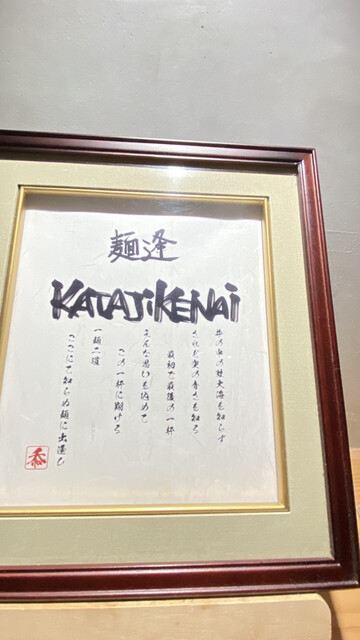 麺逢
KATAJIKENAi
井の中の蛙大海を知らず
されど空の青さを知る
最初で最後の一杯
そんな思いを込めて
この一杯に賭ける
一麺二渡
ここにて知らぬ麺に出逢ひ
忝